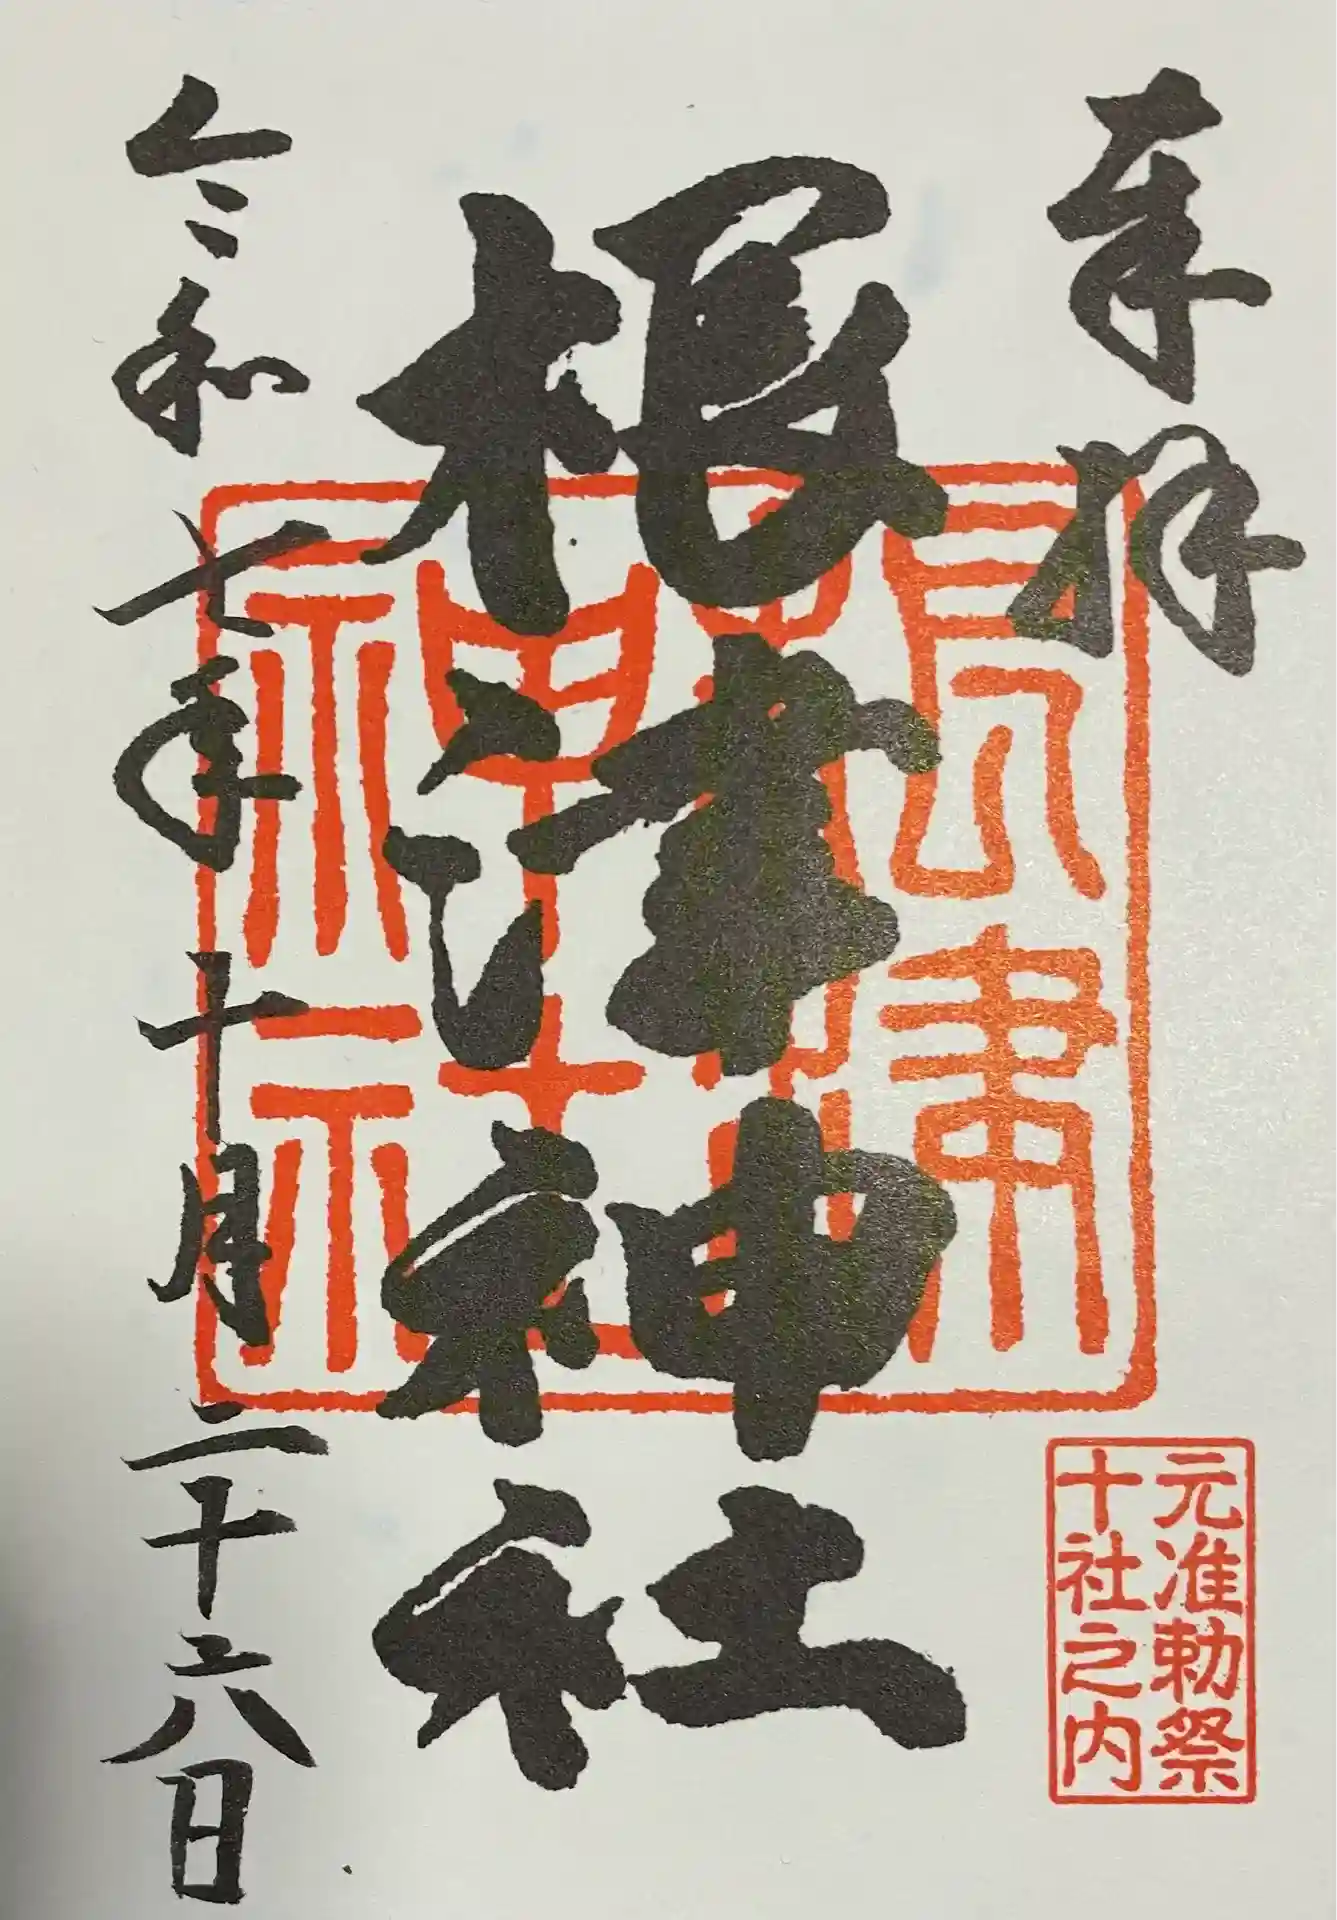 奉拝
根津神社
根津
神社
元准勅祭
十社之内
令和七年十月二十六日